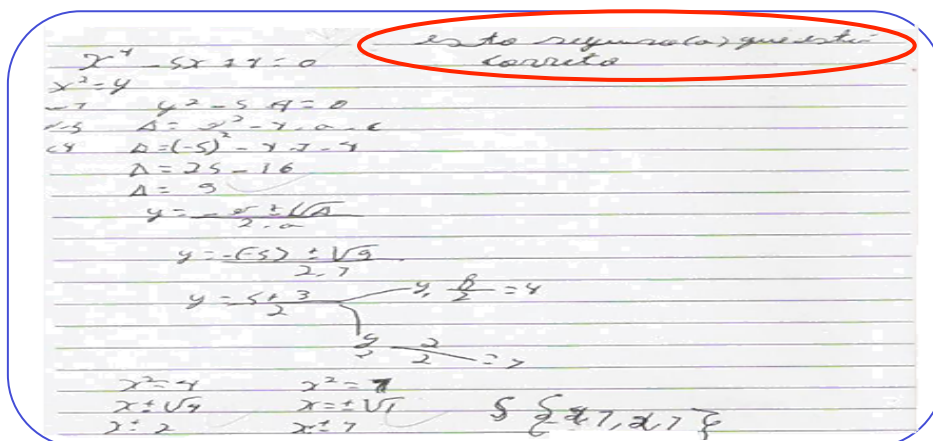 esto seguro(a) que está
correto
x⁴ - 5x + 4 = 0
x² = y
y² - 5 + 4 = 0
Δ = b² - 4 . a . c
Δ = (-5)² - 4 . 1 . 4
Δ = 25 - 16
Δ = 9
y = -b ± √Δ / 2 . a
y = -(-5) ± √9 / 2 . 1
y = 5 ± 3 / 2
y, 8/2 = 4
y 2/2 = 1
x² = 4 x² = 1
x ± √4 x = ± √1
x ± 2 x ± 1